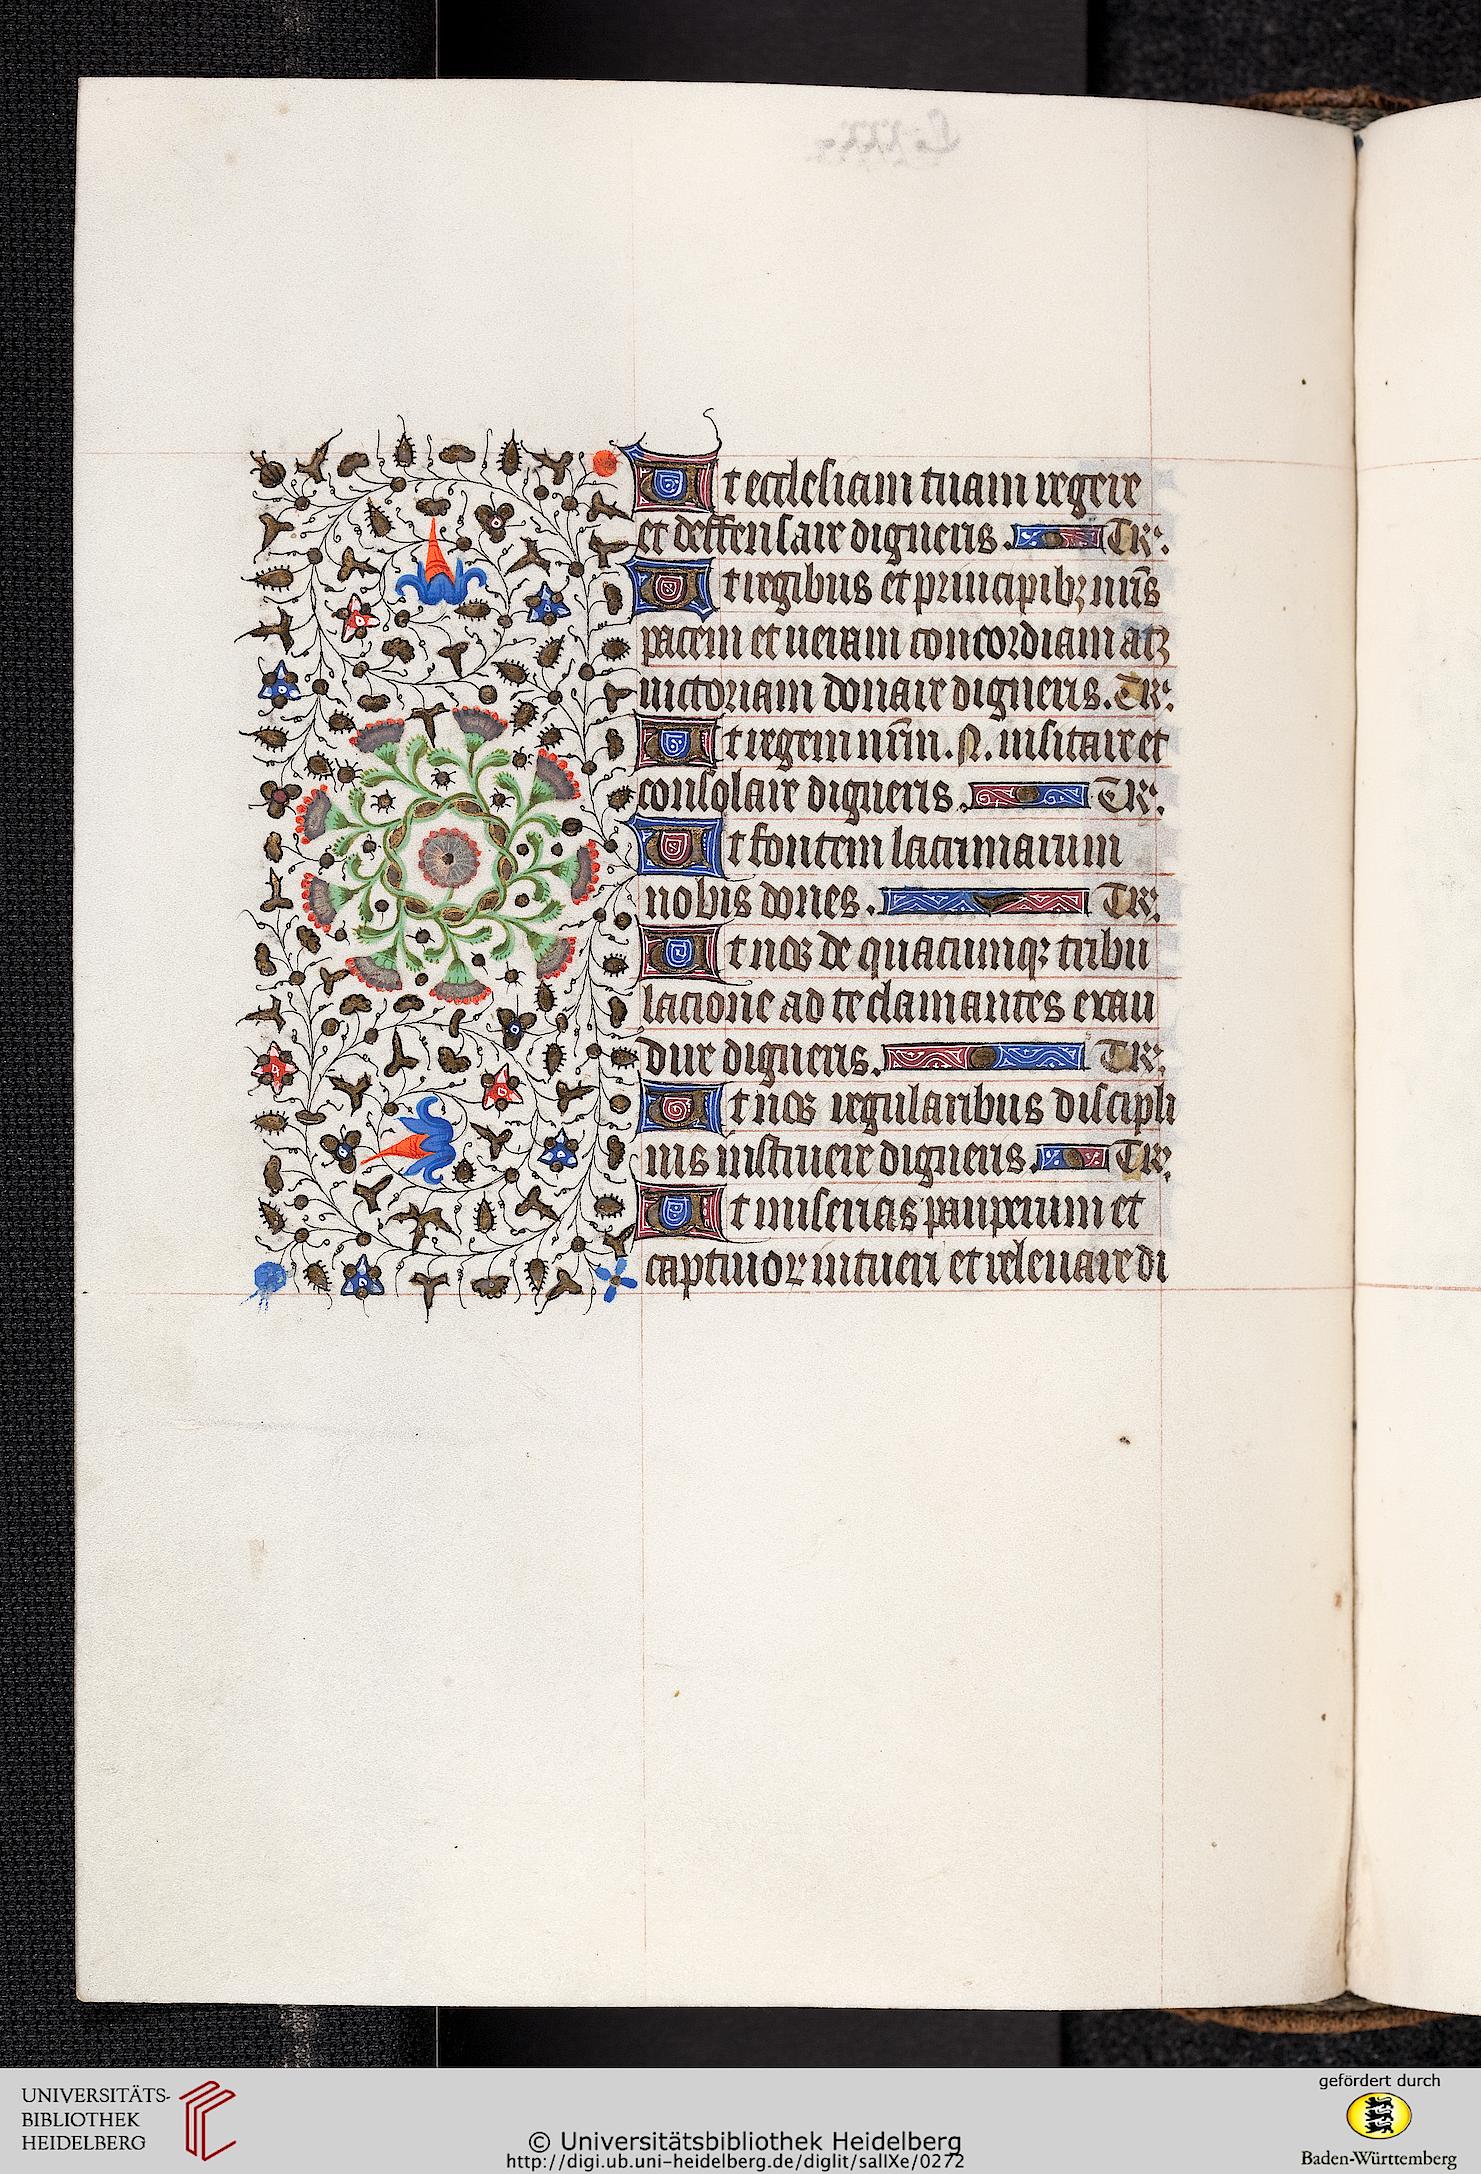 Ut ecclesiam tuam regere
et deffensare digneris. TR.
Ut regibus et principibȝ nr̄is
pacem et ueram concordiam atqȝ
uictoriam donare digneris. TR.
Ut regem nrm̄. N. uisitare et
consolare digneris. TR.
Ut fontem lacrimarum
nobis dones. TR.
Ut nos de quacumqȝ tribu
lacione ad te clamantes exau
dire digneris. TR.
Ut nos regularibus discipli
nis instruere digneris. TR.
Ut miserias pauperum et
captiuoꝝ intueri et releuare di
UNIVERSITÄTS-
BIBLIOTHEK
HEIDELBERG
© Universitätsbibliothek Heidelberg
http://digi.ub.uni-heidelberg.de/diglit/salIXe/0272
gefördert durch
Baden-Württemberg